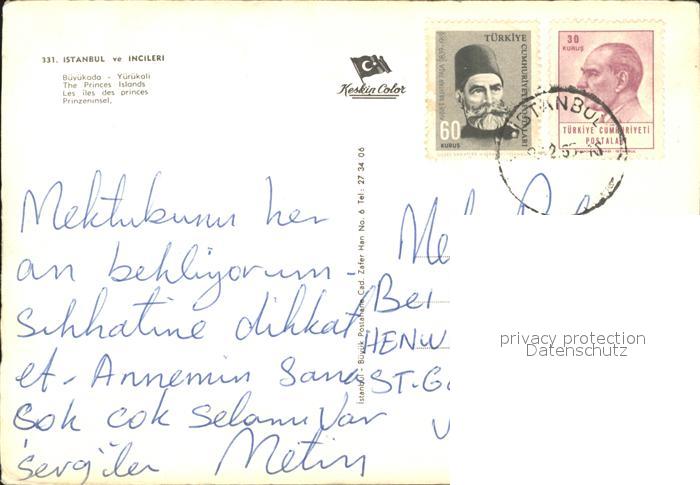 331. ISTANBUL ve INCILERI
Büyükada - Yürükali
The Princes Islands
Les îles des princes
Prinzeninsel,
Keskin Color
TÜRKİYE
CUMHURİYETİ POSTALARI
60
KURUŞ
30
KURUŞ
TÜRKİYE CUMHURİYETİ
POSTALARI
ISTANBUL
Istanbul - Büyük Postahane Cad. Zafer Han No. 6 Tel: 27 34 06
Mektubunu her
an bekliyorum -
Sıhhatine dikkat
et - Annemin Sana
Çok çok selamı var
Sevgiler Metin
Bei
HENW
ST. G
privacy protection
Datenschutz